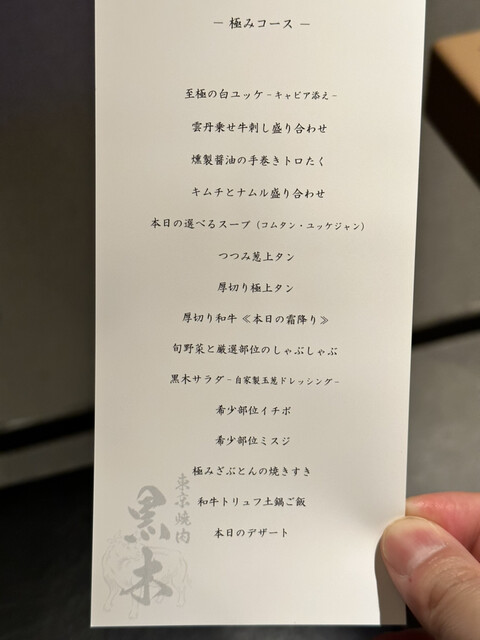 ― 極みコース ―
至極の白ユッケ-キャビア添え-
雲丹乗せ牛刺し盛り合わせ
燻製醤油の手巻きトロたく
キムチとナムル盛り合わせ
本日の選べるスープ（コムタン・ユッケジャン）
つつみ葱上タン
厚切り極上タン
厚切り和牛≪本日の霜降り≫
旬野菜と厳選部位のしゃぶしゃぶ
黒木サラダ-自家製玉葱ドレッシング-
希少部位イチボ
希少部位ミスジ
極みざぶとんの焼きすき
和牛トリュフ土鍋ご飯
本日のデザート
東京焼肉
黒木